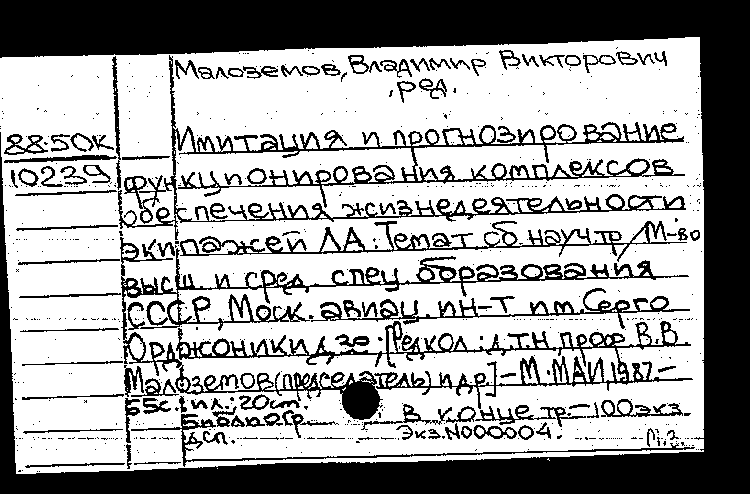 Малоземов, Владимир Викторович,
ред.
88-50К
Имитация и прогнозирование
10239
функционирования комплексов
обеспечения жизнедеятельности
экипажей ЛА: Темат сб науч.тр / М-во
высш. и сред. спец. образования
СССР, Моск. авиац. ин-т им. Серго
Орджоникидзе; [Редкол.: д.т.н, проф. В.В.
Малоземов (председатель) и др] – М. МАИ, 1987. –
55с.: ил.; 20см.
Библиогр. в конце тр. – 100экз
дсп. Экз.N000004.